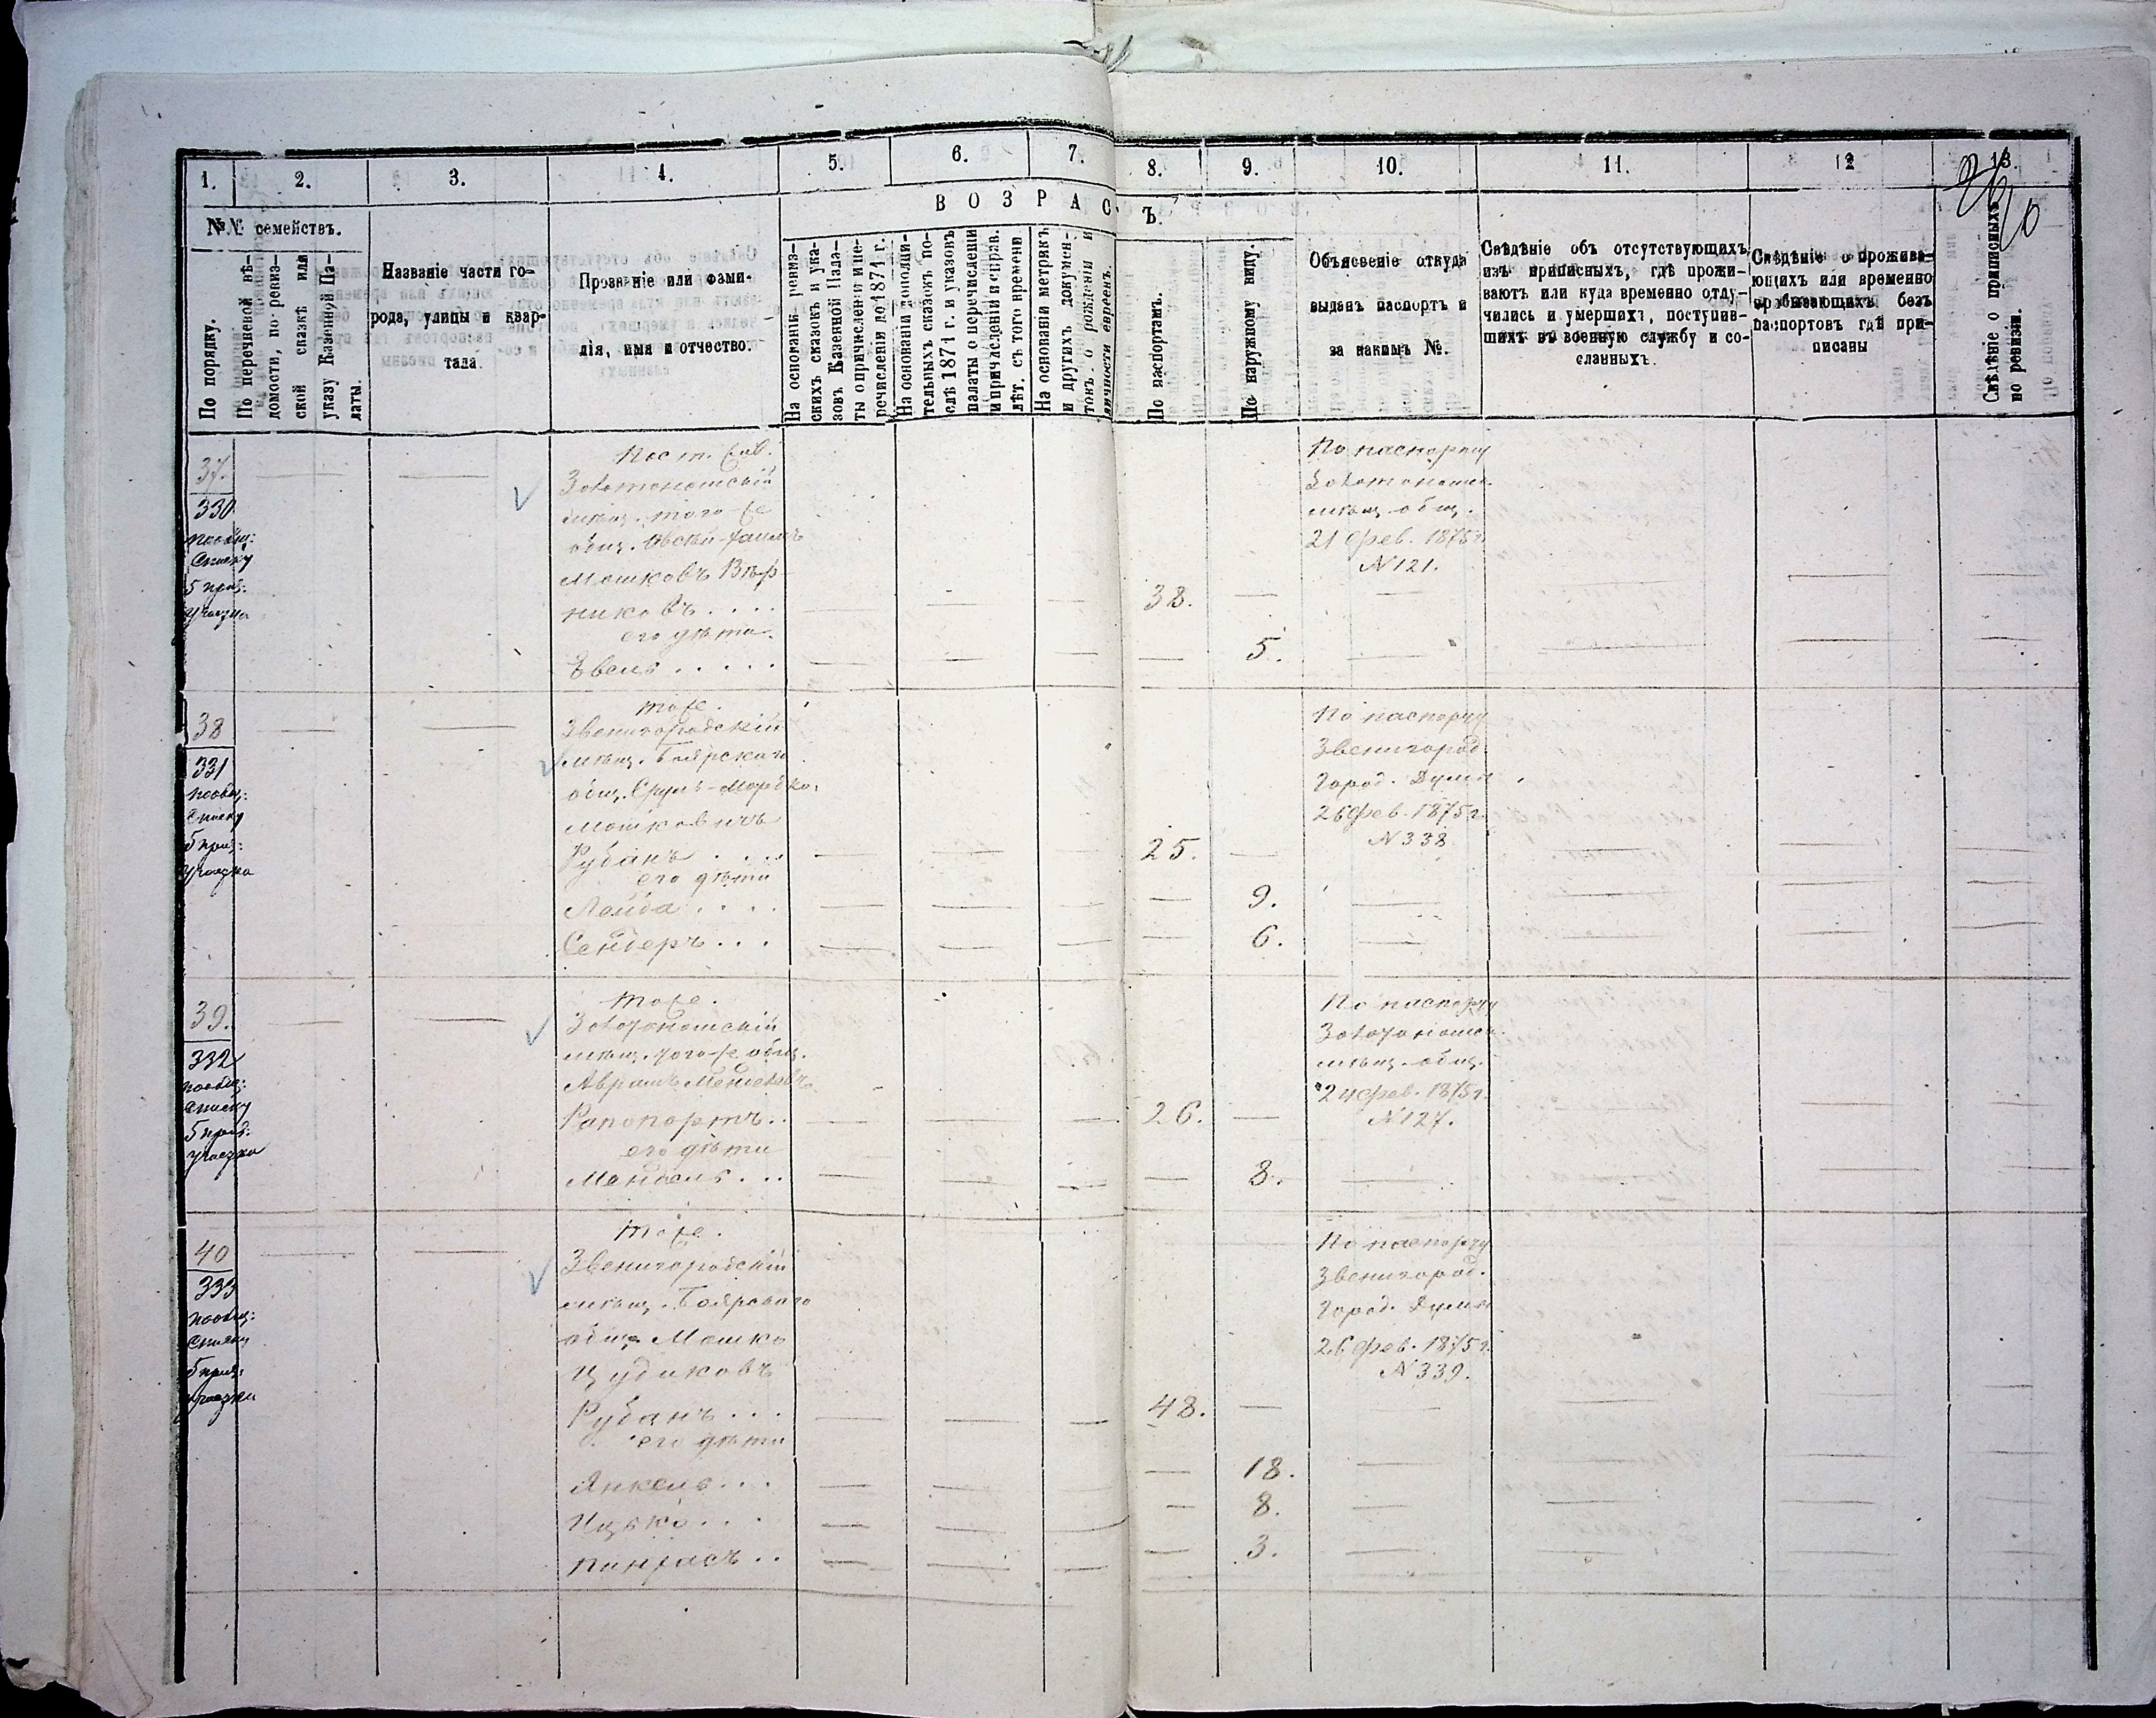 1. 2. 3. 4. 5. 6. 7. 8. 9. 10. 11. 12 13.
ВОЗРАСТЪ.
№№ семействъ.
По порядку.
По перечневой вѣ-
домости, по ревиз-
ской сказкѣ или
указу Казенной Па-
латы.
Названіе части го-
рода, улицы и квар-
тала.
Прозваніе или фами-
лія, имя и отчество.
На основаніи ревиз-
скихъ сказокъ и ука-
зовъ Казенной Пала-
ты о причисленіи и пе-
речисленіи по 1871 г.
На основаніи дополни-
тельныхъ сказокъ по-
слѣ 1871 г. и указовъ
палаты о перечисленіи
и причисленіи и справ.
лѣт. съ того времени.
На основаніи метрикъ
и другихъ докумен-
токъ о рожденіи и
личности евреевъ.
По паспортамъ.
По наружному виду.
Объясненіе откуда
выданъ паспортъ и
за какимъ №.
Свѣдѣніе объ отсутствующихъ
изъ приписныхъ, гдѣ прожи-
ваютъ или куда временно отлу-
чились и умершихъ, поступив-
шихъ въ военную службу и со-
сланныхъ.
Свѣдѣніе о прожива-
ющихъ или временно
пребывающихъ безъ
паспортовъ гдѣ при-
писаны
Свѣдѣніе о приписныхъ
по ревизіи.
37.
330
по общ:
списку
5 приз:
участка
Золотоношскій
мѣщ. того-же
общ.
Мошковъ
его дѣти
38.
5.
По паспорту
Золотонош.
мѣщ. общ.
21 фев. 1875 г.
№ 121.
38
331
по общ:
списку
5 приз:
участка
тоже.
Звенигородскій
мѣщ. Боярскаго
общ. Сруль-Мордко
Мошковичъ
Рубанъ . . .
его дѣти
Лейба . . . .
Сендеръ . . .
25.
9.
6.
По паспорту
Звенигород.
Город. Думы
26 фев. 1875 г.
№ 338
39.
332
по общ:
списку
5 приз:
участка
тоже.
Золотоношскій
мѣщ. того-же общ.
Аврамъ Менделевъ
Рапопортъ . .
его дѣти
Мендель . . .
26.
8.
По паспорту
Золотонош.
мѣщ. общ.
24 фев. 1875 г.
№ 127.
40
333
по общ:
списку
5 приз:
участка
тоже.
Звенигородскій
мѣщ. Боярскаго
общ. Мошко
Цудиковъ
Рубанъ . . .
его дѣти
Янкель . . .
Ицько . . .
Пинхасъ . .
48.
18.
8.
3.
По паспорту
Звенигород.
Город. Думы
26 фев. 1875 г.
№ 339.